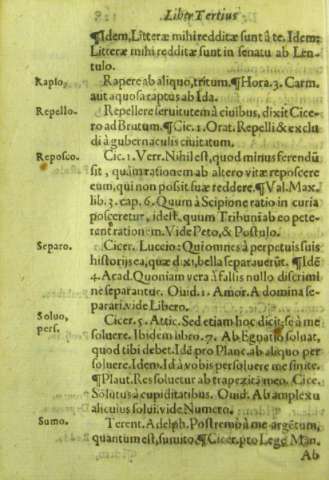 Liber Tertius
¶Idem, Litteræ mihi redditæ sunt à te. Idem:
Litteræ mihi redditæ sunt in senatu ab Len-
tulo.
Rapio. Rapere ab aliquo, tritum. ¶Hora. 3. Carm.
aut aquosa raptus ab Ida.
Repello. Repellere seruitutem à ciuibus, dixit Cice-
ro ad Brutum. ¶Cic. 1. Orat. Repelli & exclu
di à gubernaculis ciuitatum.
Reposco. Cic. 1. Verr. Nihil est, quod minus ferendũ
sit, quàm rationem ab altero vitæ reposcere
eum, qui non possit suæ reddere. ¶Val. Max.
lib. 3. cap. 6. Quum à Scipione ratio in curia
posceretur, idest, quum Tribuni ab eo pete-
rent rationem. Vide Peto, & Postulo.
Separo. Cicer. Lucceio: Qui omnes à perpetuis suis
historijs ea, quæ dixi, bella separauerũt. ¶Idẽ
4. Acad. Quoniam vera à falsis nullo discrimi
ne separantur. Ouid. 1. Amor. A domina se-
parari. vide Libero.
Soluo, pers. Cicer. 5. Attic. Sed etiam hoc dicit, se à me
soluere. Ibidem libro. 7. Ab Egnatio soluat,
quod tibi debet. Idẽ pro Planc. ab aliquo per
soluere. Idem. Id à vobis persoluere me sinite.
¶Plaut. Res soluetur ab trapezita meo. Cice.
Solutus à cupiditatibus. Ouid. Ab amplexu
alicuius solui. vide Numero.
Sumo. Terent. Adelph. Postremò à me argẽtum,
quantum est, sumito. ¶Cicer. pro Lege Man.
Ab